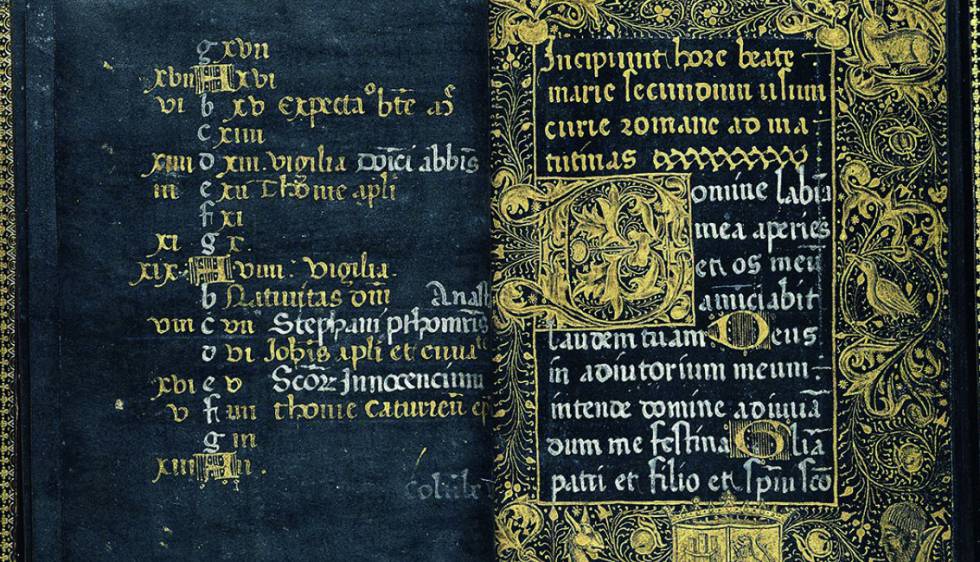 g xvii
xvii A xvi
vi b xv Expectaº bte
c xiiii
xiiii d xiii vigilia abbis
iii e xii Thome apli
f xi
xi g x.
xix A viiii: vigilia.
b Nativitas dni Anast
viii c vii Stephani pthomris
d vi Johis apli et
xvi e v Scorz Innocencium
v f iiii thome
g iii
xiii A ii.
Incipiunt hore beate
marie secundum usum
curie romane ad ma
tutinas
Domine labia
mea aperies
et os meu
anuciabit
laudem tuam Deus
in adiutorium meum:
intende domine adiuua
dum me festina Glia
patri et filio et spiui sco